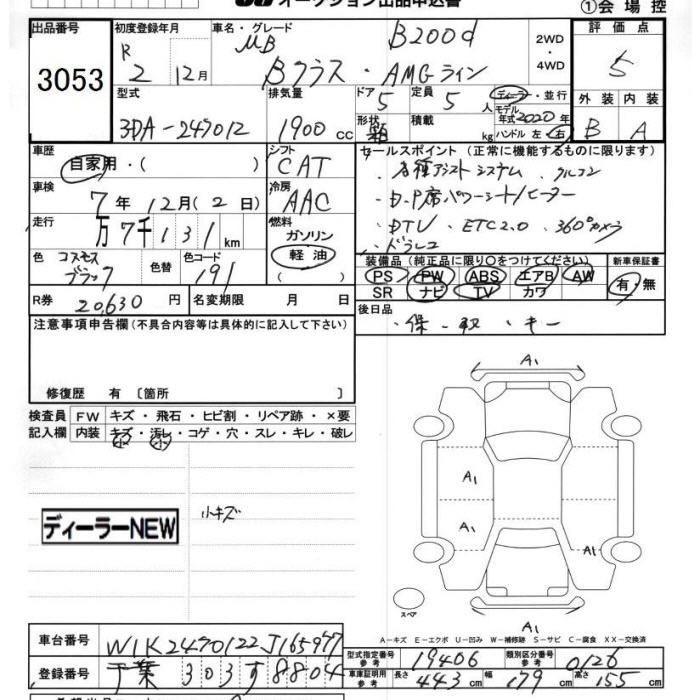 オークション出品申込書
①会場控
出品番号 3053
初度登録年月 R 2 12月
車名・グレード MB B200d
Bクラス・AMGライン
2WD・4WD
評価点 5
外装 内装
B A
型式 3DA-247012
排気量 1900 cc
ドア 5
定員 5 人
形状 箱
積載 kg
ディーラー・並行
モデル年式 2020年
ハンドル 左・右
車歴 自家用・( )
車検 7年12月(2日)
走行 万7千131km
色 コスモスブラック
色替
色コード 191
シフト CAT
冷房 AAC
燃料 ガソリン 軽油 ( )
R券 20,630円
名変期限 月 日
セールスポイント(正常に機能するものに限ります)
・各種アシストシステム・クルコン
・D.P席パワーシート/ヒーター
・DTV・ETC2.0・360°カメラ
・ドラレコ
装備品(純正品に限り○をつけてください)
PS PW ABS エアB AW
SR ナビ TV カワ
新車保証書 有・無
後日品
・保・取・キー
注意事項申告欄(不具合内容等は具体的に記入して下さい)
修復歴 有 〔箇所 〕
検査員記入欄
FW キズ・飛石・ヒビ割・リペア跡・×要
内装 キズ・汚レ・コゲ・穴・スレ・キレ・破レ
小 小
ディーラーNEW
小キズ
A1
A1
A1
A1
A1
スペア
A-キズ E-エクボ U-凹み W-補修跡 S-サビ C-腐食 XX-交換済
車台番号 W1K2470122J165977
登録番号 千葉 303 す 8804
型式指定番号 参考 19406
類別区分番号 参考 0126
車庫証明用 参考 長さ 443cm 幅 179cm 高さ 155cm